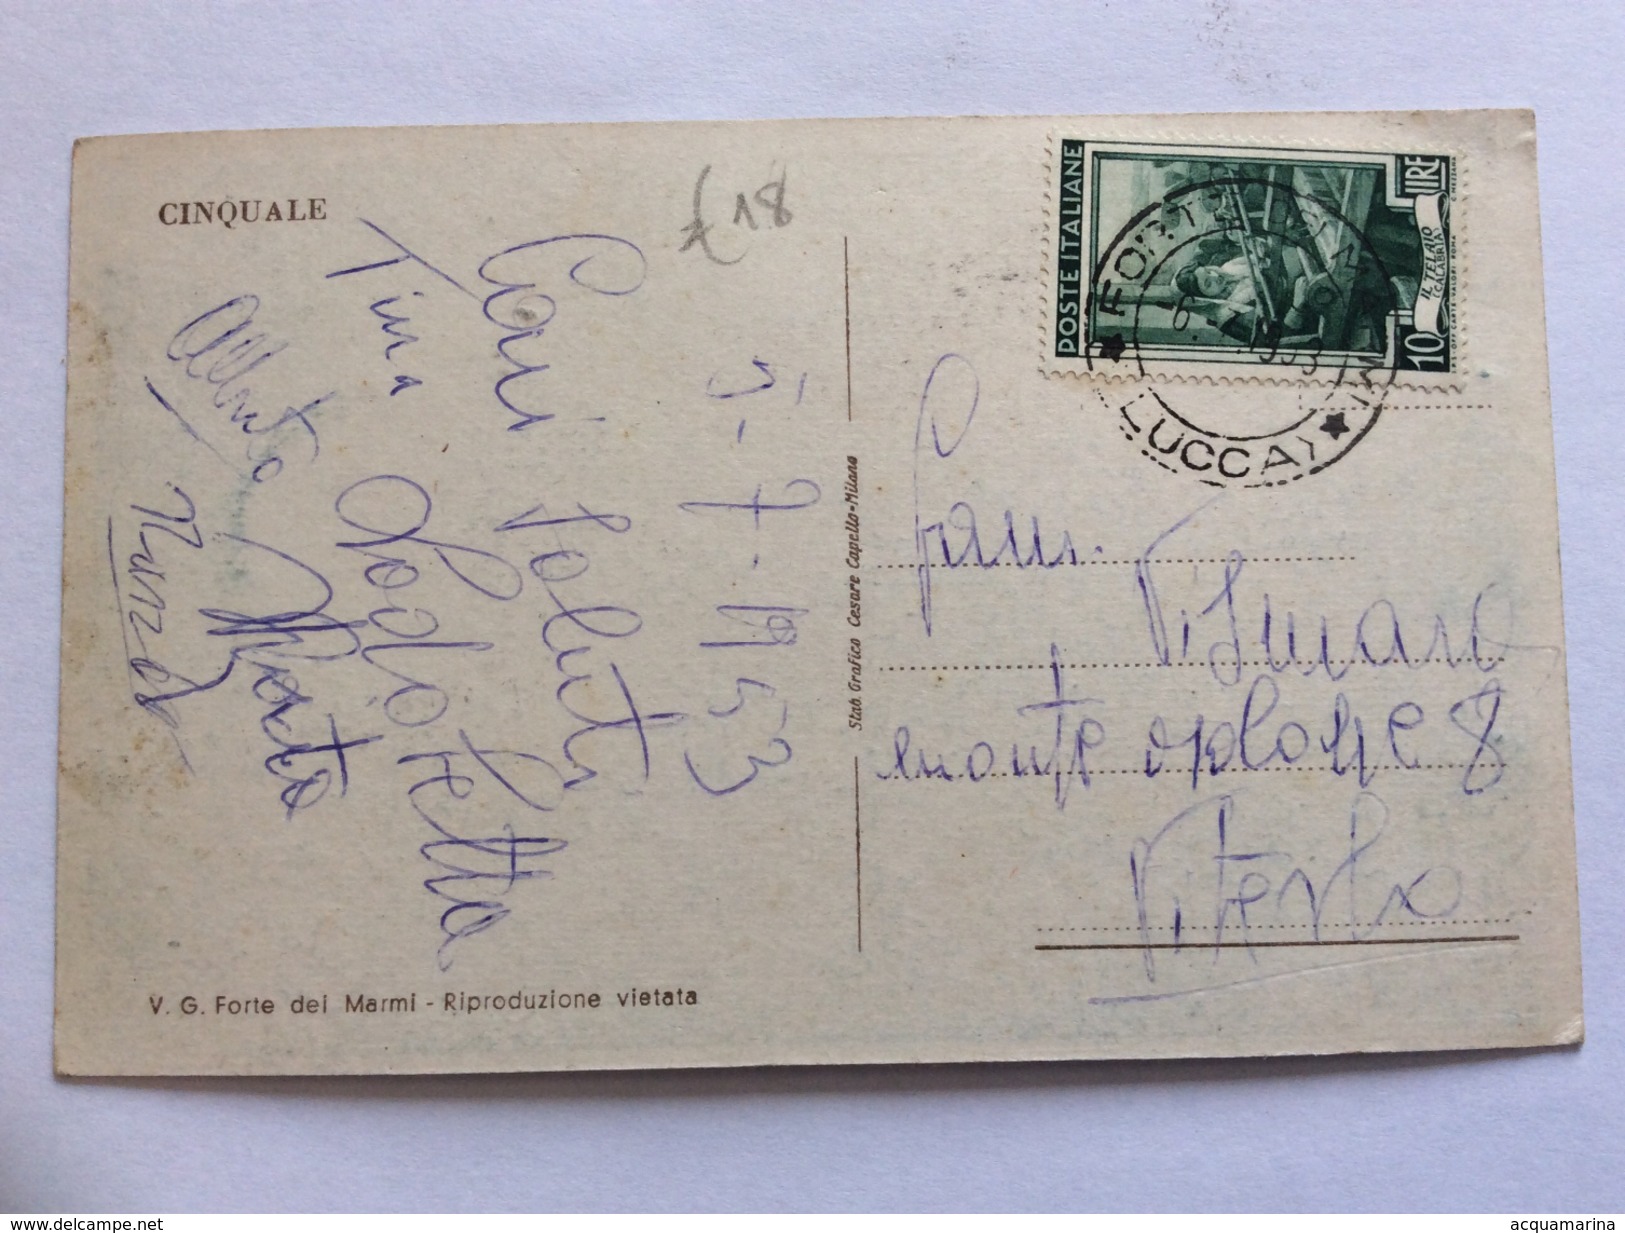 CINQUALE
£18
5-7-1953
Cari Saluti
Tina
Alberto
Nunzio
V. G. Forte dei Marmi - Riproduzione vietata
Stab. Grafico Cesare Capello-Milano
POSTE ITALIANE
10 LIRE
IL TELAIO
(CALABRIA)
C. MEZZANA
I.P. OFF. CARTE-VALORI ROMA
FORTE DEI MARMI
(LUCCA)
6.7.1953
Fam.
monte 8
Viterbo
www.delcampe.net
acquamarina